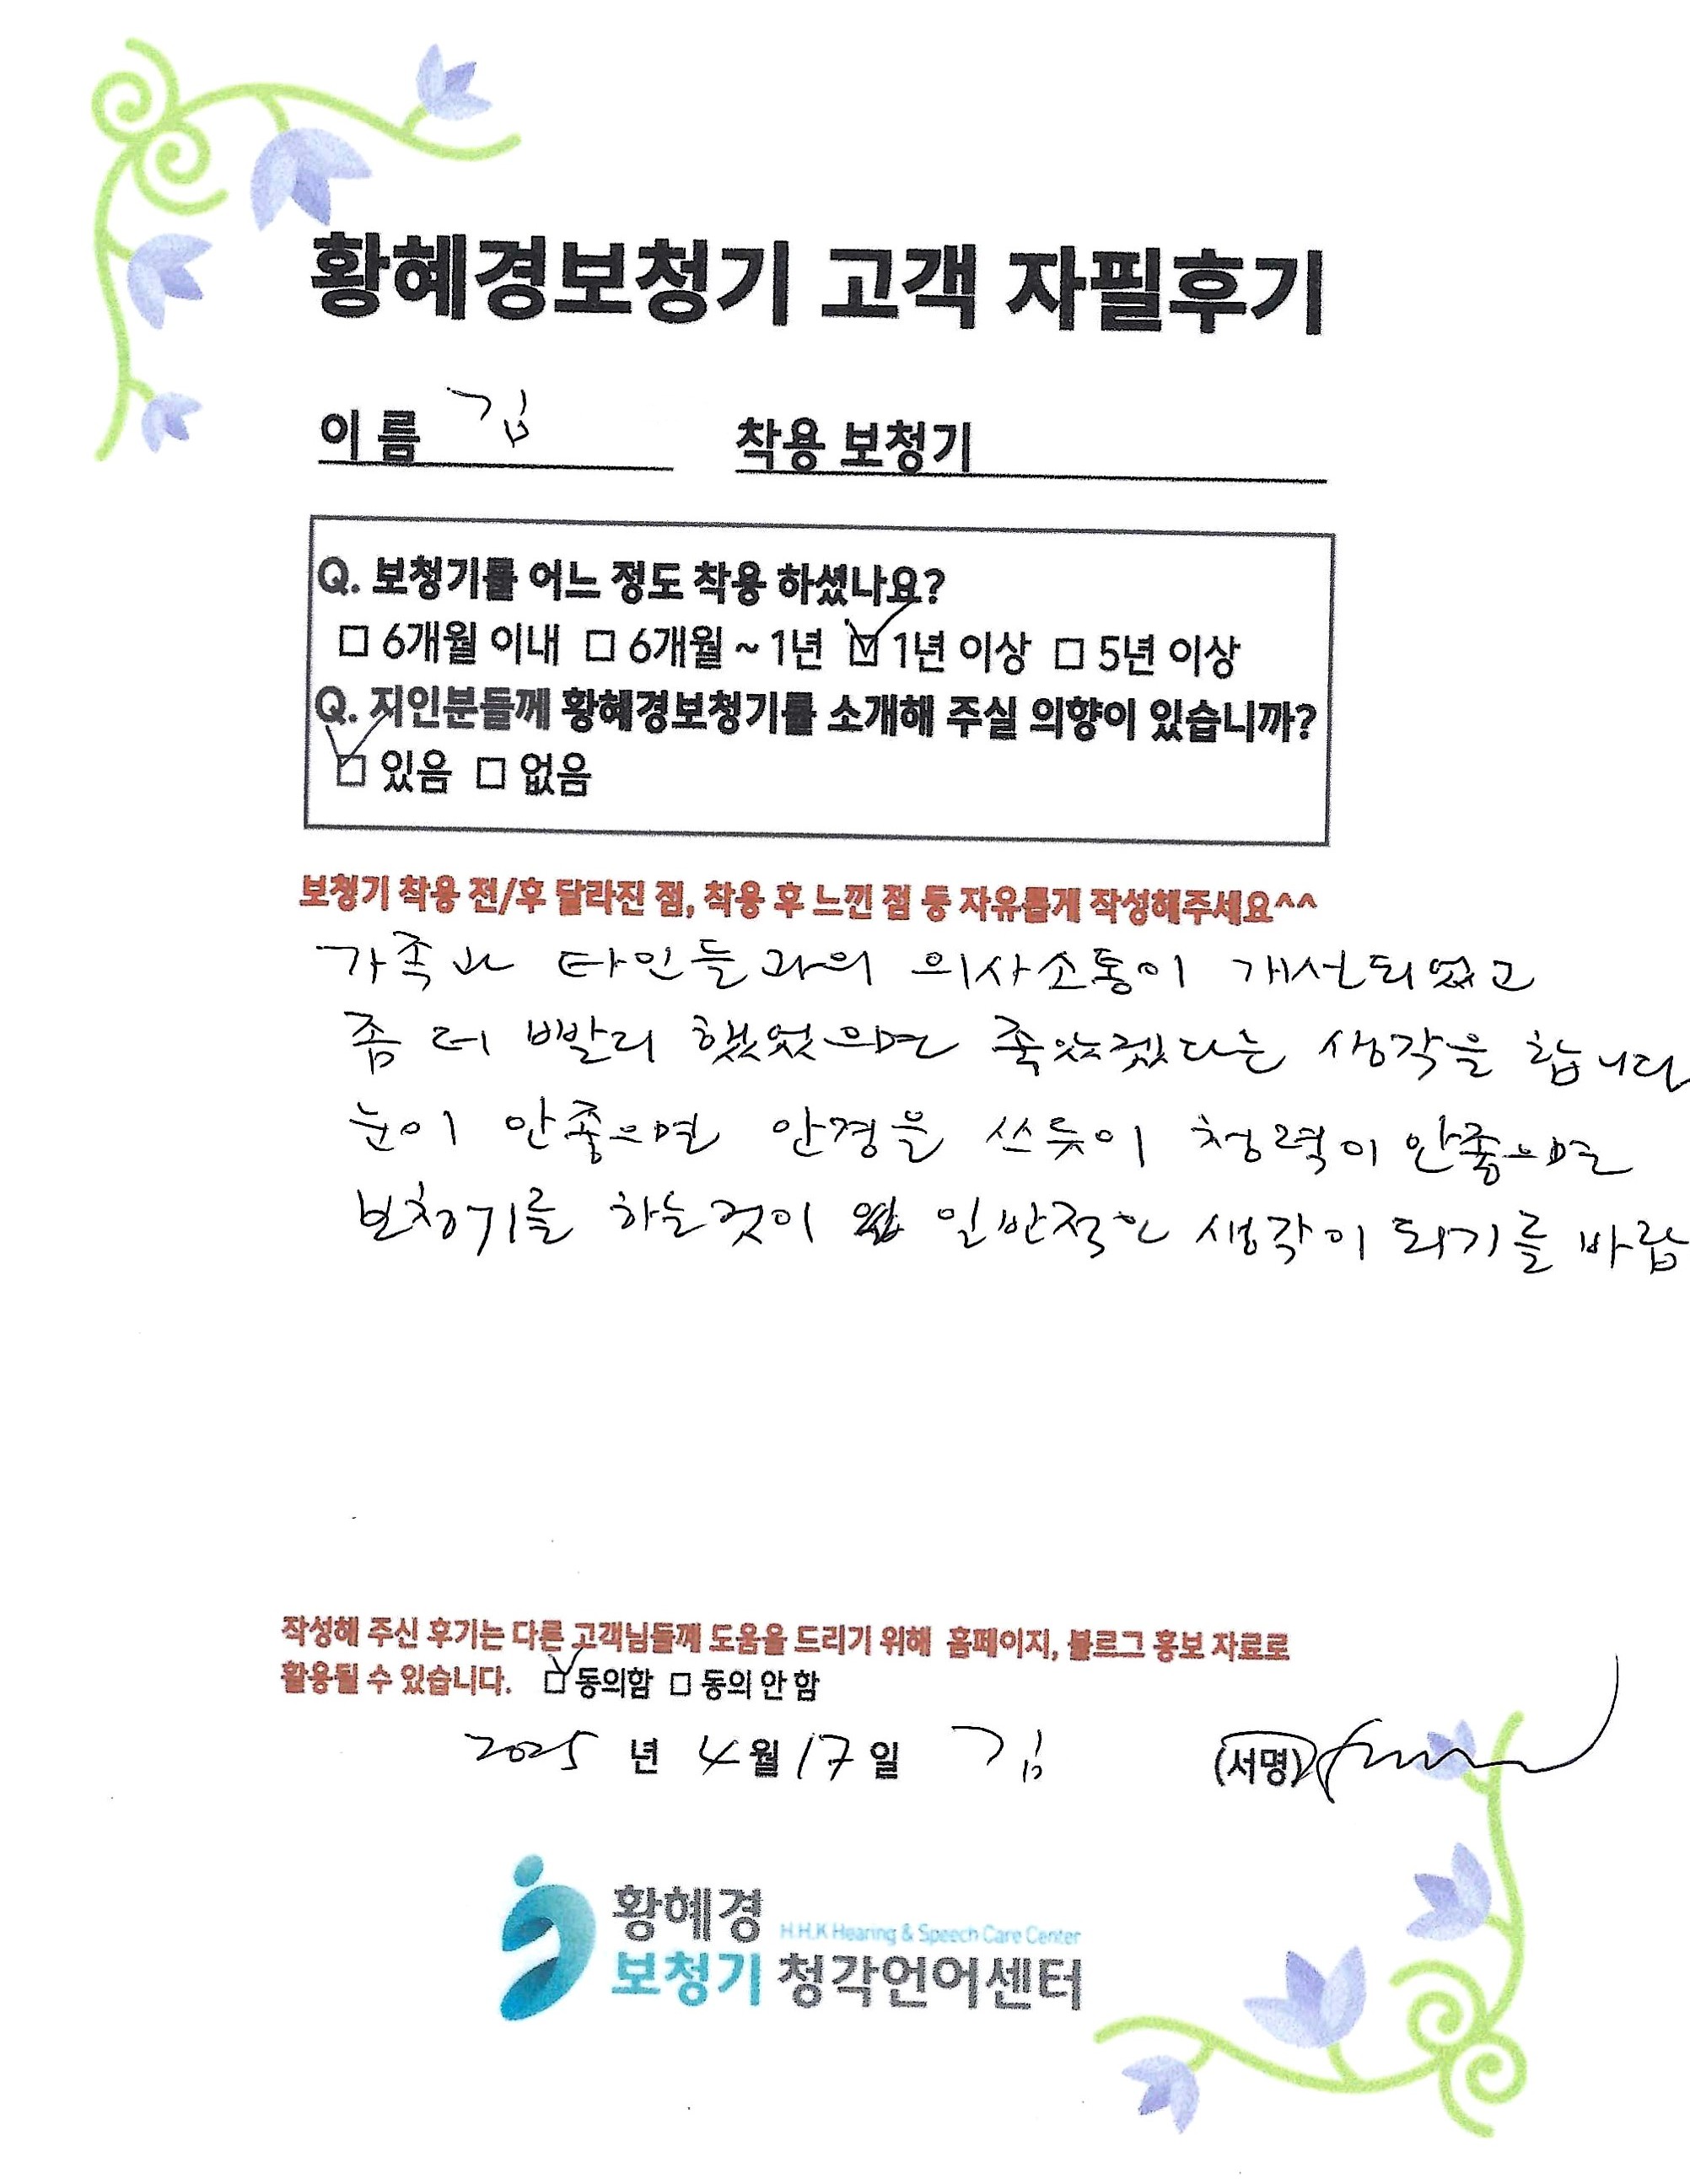 황혜경보청기 고객 자필후기
이 름 김 착용 보청기
Q. 보청기를 어느 정도 착용 하셨나요?
□ 6개월 이내 □ 6개월 ~ 1년 ☑ 1년 이상 □ 5년 이상
Q. 지인분들께 황혜경보청기를 소개해 주실 의향이 있습니까?
☑ 있음 □ 없음
보청기 착용 전/후 달라진 점, 착용 후 느낀 점 등 자유롭게 작성해주세요^^
가족과 타인들과의 의사소통이 개선되었고
좀 더 빨리 했었으면 좋았겠다는 생각을 합니다
눈이 안좋으면 안경을 쓰듯이 청력이 안좋으면
보청기를 하는것이 일반적인 생각이 되기를 바랍
작성해 주신 후기는 다른 고객님들께 도움을 드리기 위해 홈페이지, 블로그 홍보 자료로
활용될 수 있습니다. ☑ 동의함 □ 동의 안 함
2025 년 4 월 17 일 김 (서명)
황혜경
H.H.K Hearing & Speech Care Center
보청기 청각언어센터